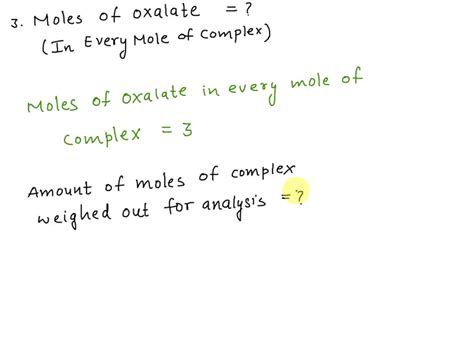 3. Moles of oxalate = ?
(In Every Mole of Complex)
Moles of oxalate in every mole of
complex = 3
Amount of moles of complex
weighed out for analysis = ?